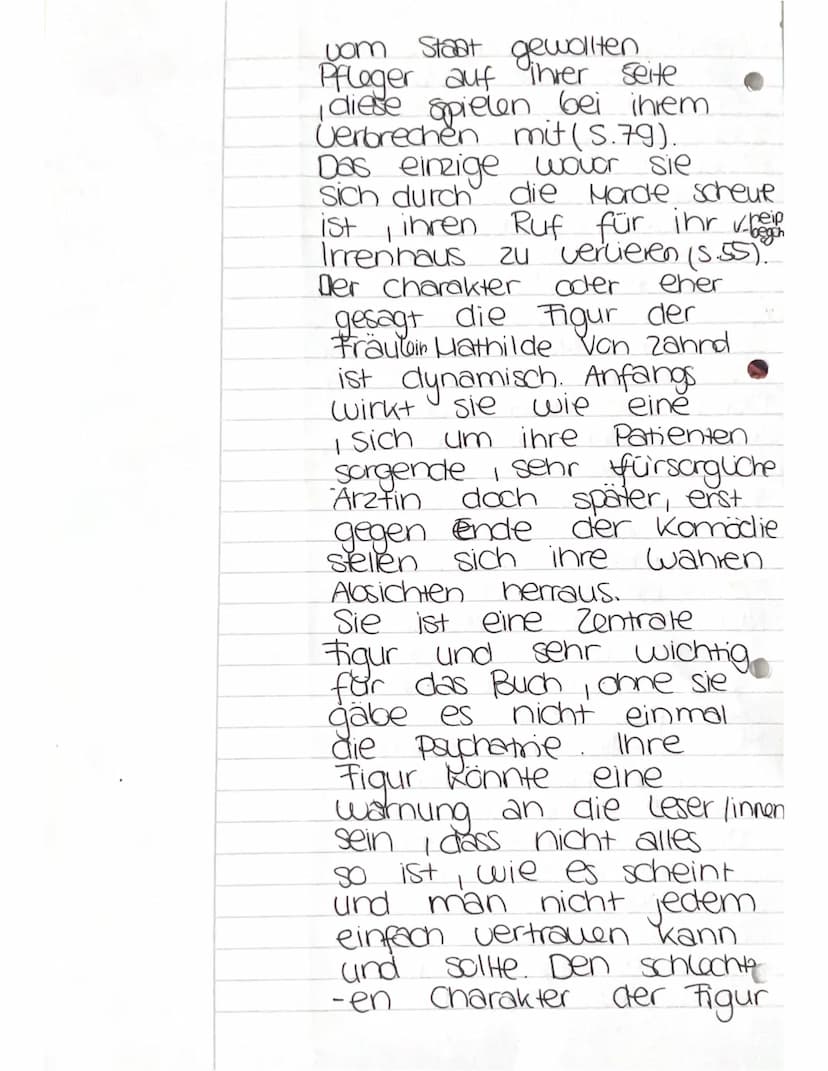 vom Staat gewollten
Pfleger auf ihrer seite
, diese spielen bei ihrem
Verbrechen mit (S.79).
Das einzige wovor sie
sich durch die Morde scheut
ist , ihren Ruf für ihr
Irrenhaus zu verlieren (S.55).
Der Charakter oder eher
gesagt die Figur der
Fräulein Mathilde Von Zahnd
ist dynamisch. Anfangs
wirkt sie wie eine
, sich um ihre Patienten
sorgende , sehr fürsorgliche
Ärztin doch später, erst
gegen Ende der Komödie
stellen sich ihre wahren
Absichten herraus.
Sie ist eine Zentrale
Figur und sehr wichtig
für das Buch , ohne sie
gäbe es nicht einmal
die Psychatrie . Ihre
Figur könnte eine
warnung an die Leser/innen
sein , dass nicht alles
so ist , wie es scheint
und man nicht jedem
einfach vertrauen kann
und sollte. Den schlecht
-en Charakter der Figur